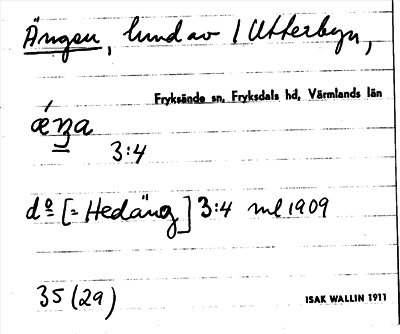 Ängen, lund av 1 Utterbyn,
Fryksände sn, Fryksdals hd, Värmlands län
ǽŋa
3:4
dº [= Hedäng] 3:4 ml 1909
35 (29)
ISAK WALLIN 1911